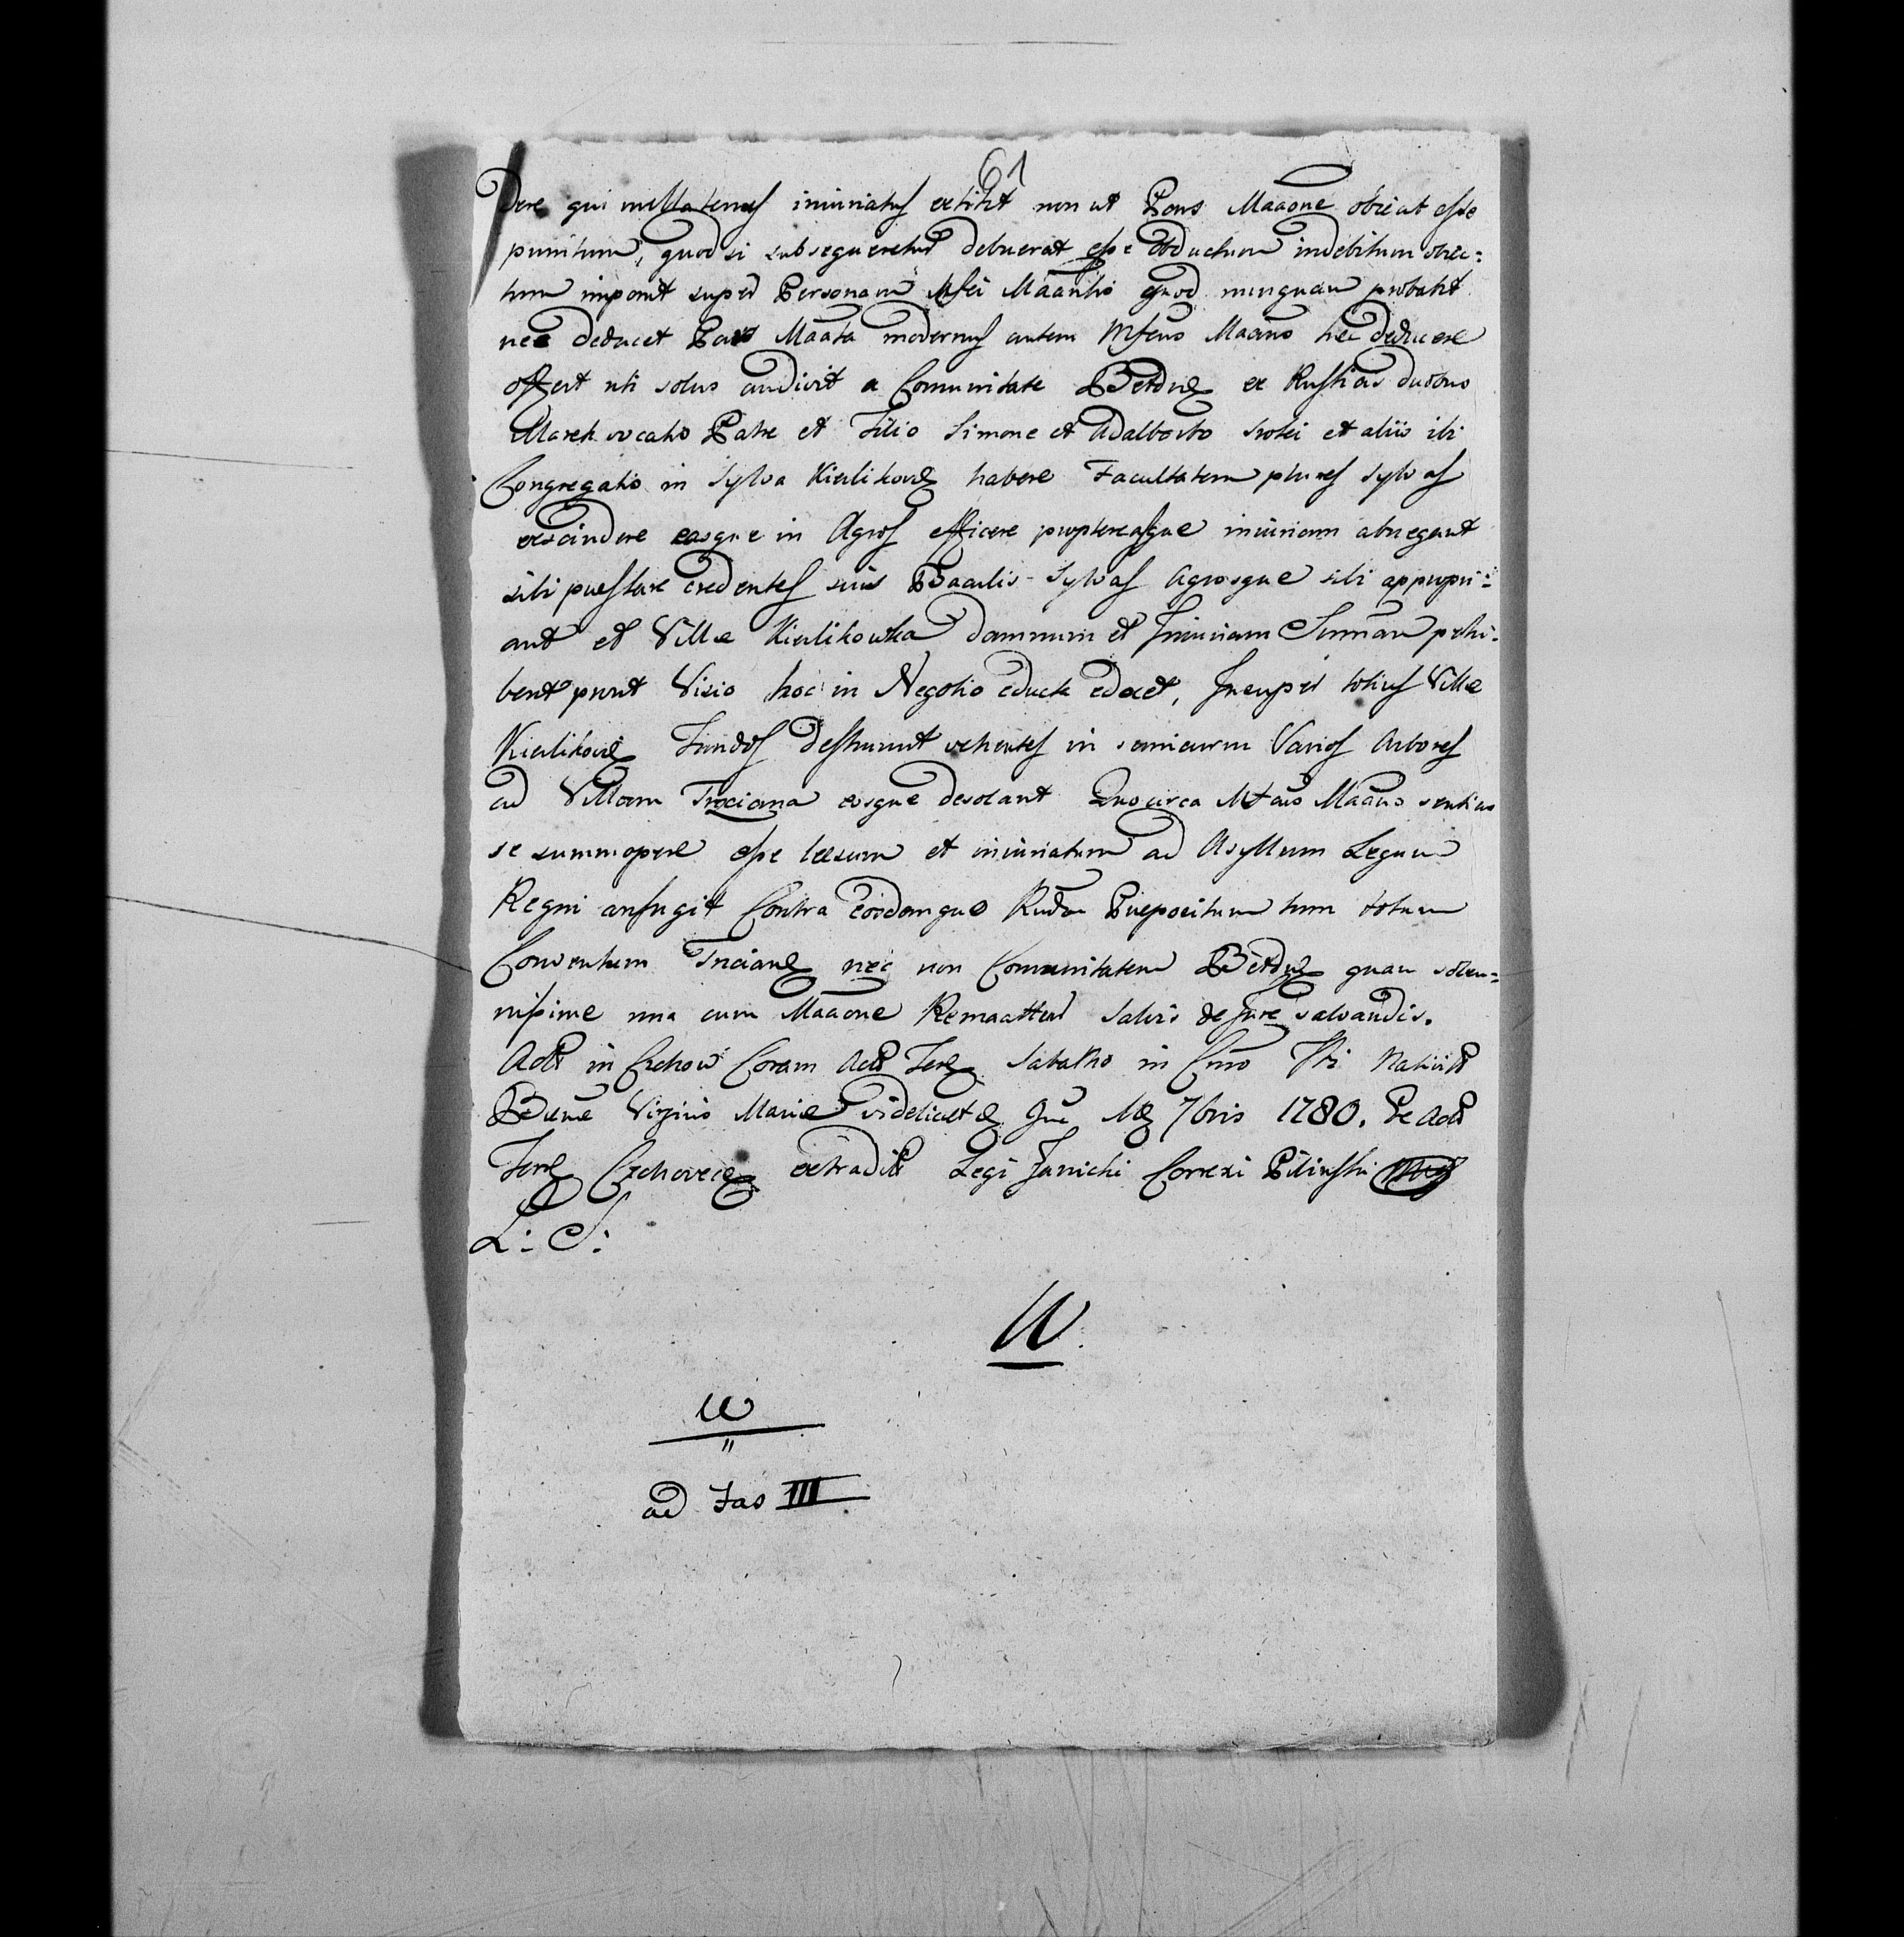 61
dere qui nullatenus iniuriatus extitit non ut Pars Maaone obicit esse
punitum, quod si subsequeretur debuerat esse obductum indebitum obiec=
tum imponit super Personam Mfci Maantis quod nunquam probabit
nec deducet Pars Maata modernus autem Mfcus Maans hec deducere
offert uti solus audivit a Comunitate ex Rusticis duobus
Marek vocatis Patre et Filio Simone et Adalberto et aliis ibi
Congregatis in Sylva Kierlikov habere Facultatem plures sylvas
exscindere easque in Agros efficere proptereaque iniuriam abnegant
sibi praestare credentes suis Baculis Sylvas Agrosque sibi appropri=
ant et Villae Kierlikowka damnum et Iniuriam Sumam perhi=
bent prout Visio hoc in Negotio educta edocet, Insuper totius Villae
Kierlikov Fundos destruunt vehentes in varios Arbores
ad Villam Trzciana eosque desolant Quocirca Mfcus Maans sentiens
se summopere esse laesum et iniuriatum ad Asyllum Legum
Regni confugit Contra eosdemque Rndum Praepositum tum totum
Conventum Trzcian nec non Comunitatem quam solen=
nissime una cum Maaone Remaattur Salvis de Jure salvandis.
Act in Czchow Coram Actis Terr Sabatho in Crno Fti Nativit
Bttme Virginis Mariae videlicet die 7bris 1780. Ex Actis
Terr Czchovecen extradit Legi Janicki Correxi Piliński
L: S:
W.
W
"
ad Fas III